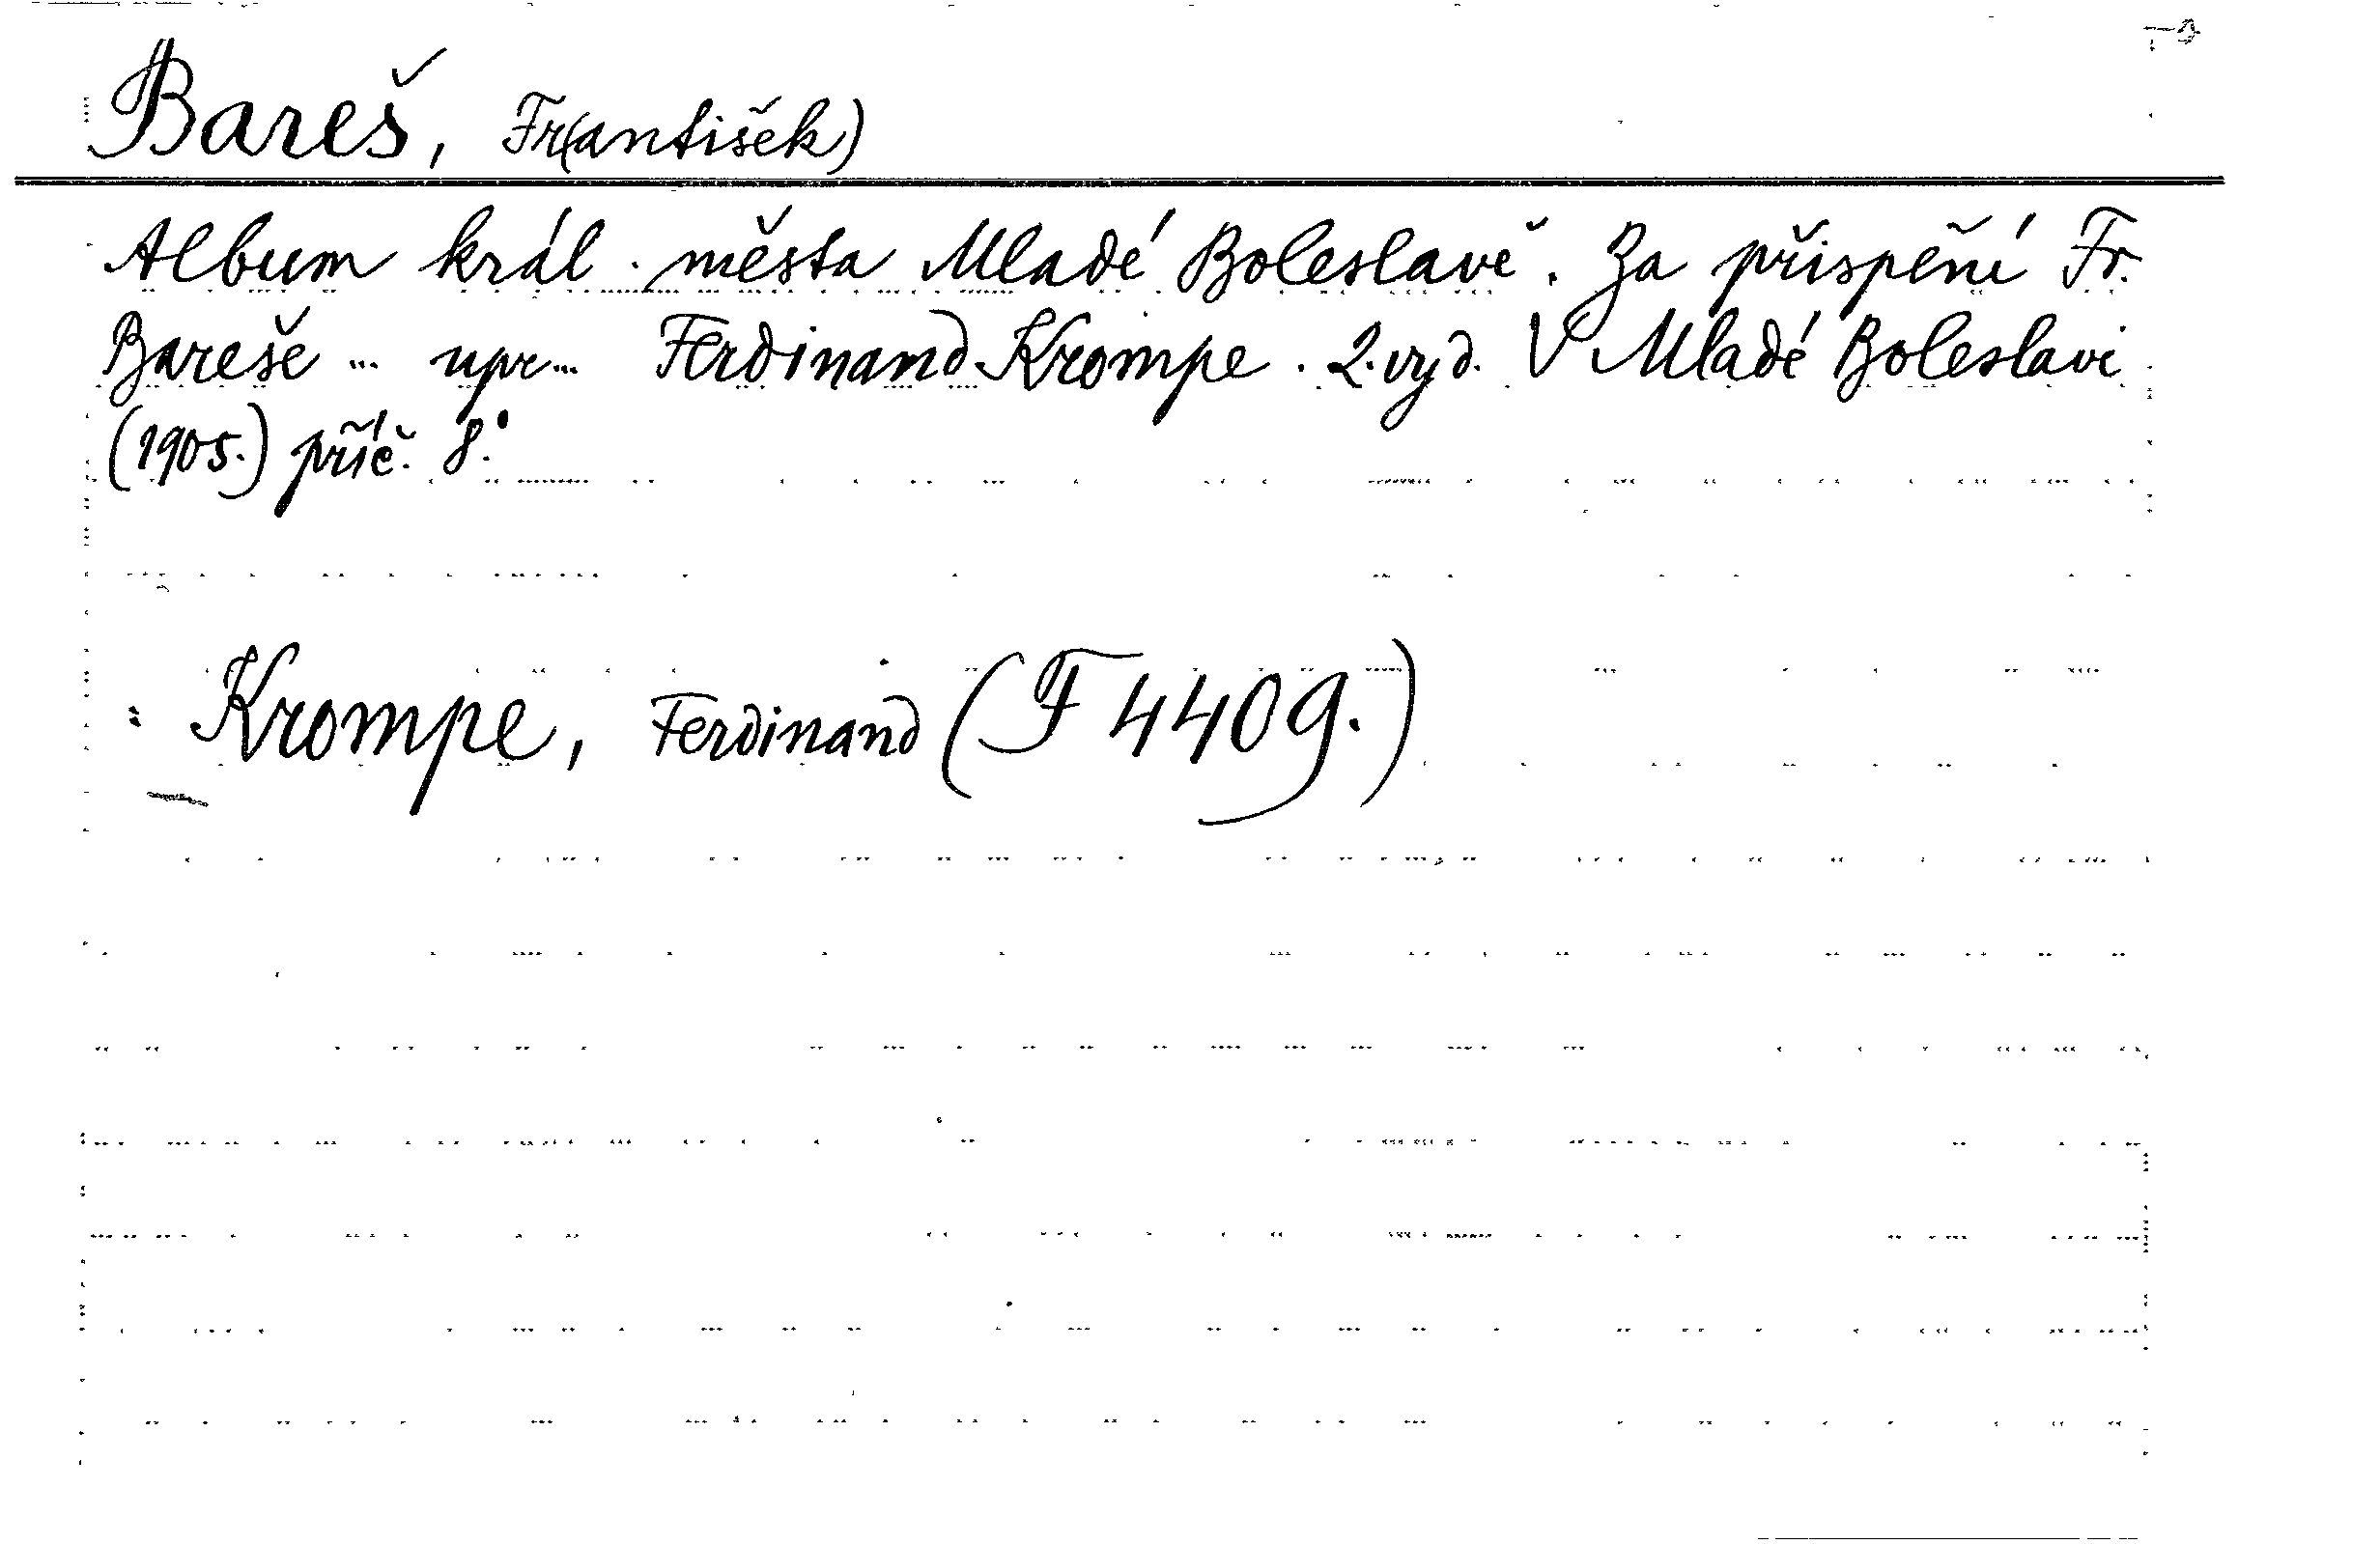 Bareš, Fr(antišek)
Album král. města Mladé Boleslavě. Za přispění Fr.
Bareše ... upr... Ferdinand Krompe. 2. vyd. V Mladé Boleslavi
(1905.) příč. 8°.
Krompe, Ferdinand (F 4409.)